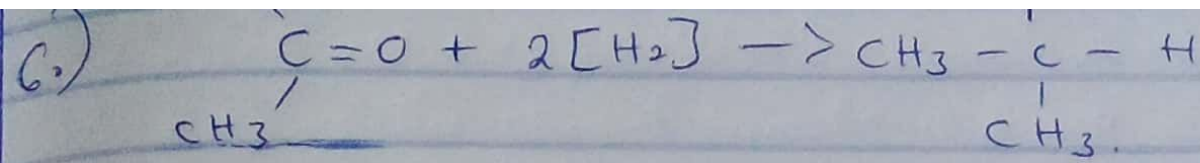 6.) C = O + 2 [H2] -> CH3 - C - H
CH3 CH3.